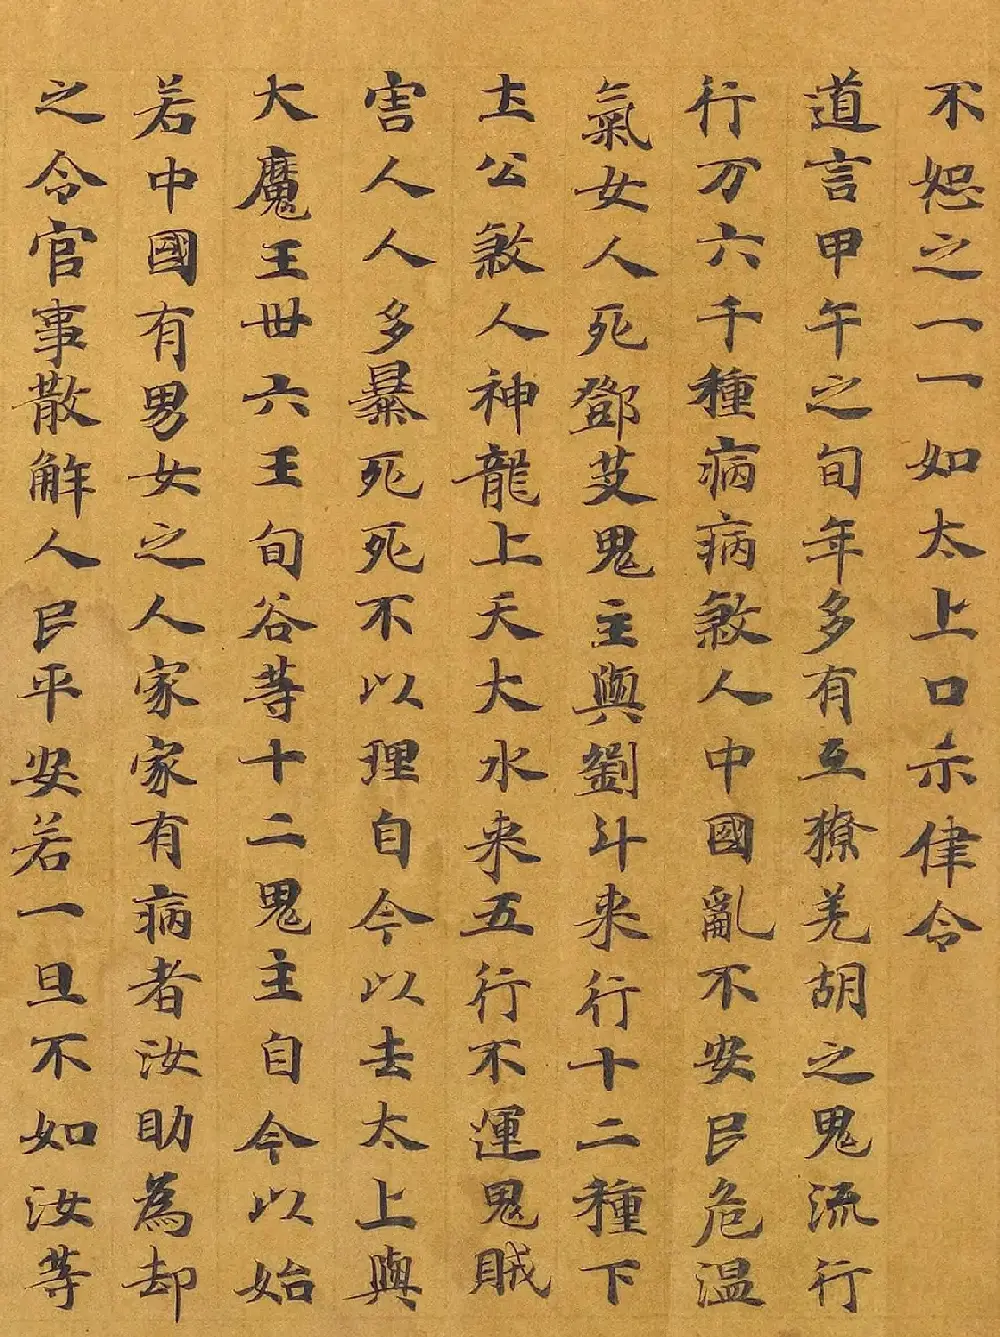 不恕之一一如太上口示律令
道言甲午之旬年多有互獠羌胡之鬼流行
行万六千種病病煞人中國亂不安民危温
氣女人死鄧艾鬼主與劉斗来行十二種下
土公煞人神龍上天大水来五行不運鬼賊
害人人多暴死死不以理自今以去太上與
大魔王丗六王旬谷等十二鬼主自今以始
若中國有男女之人家家有病者汝助為却
之令官事散解人民平安若一旦不如汝等